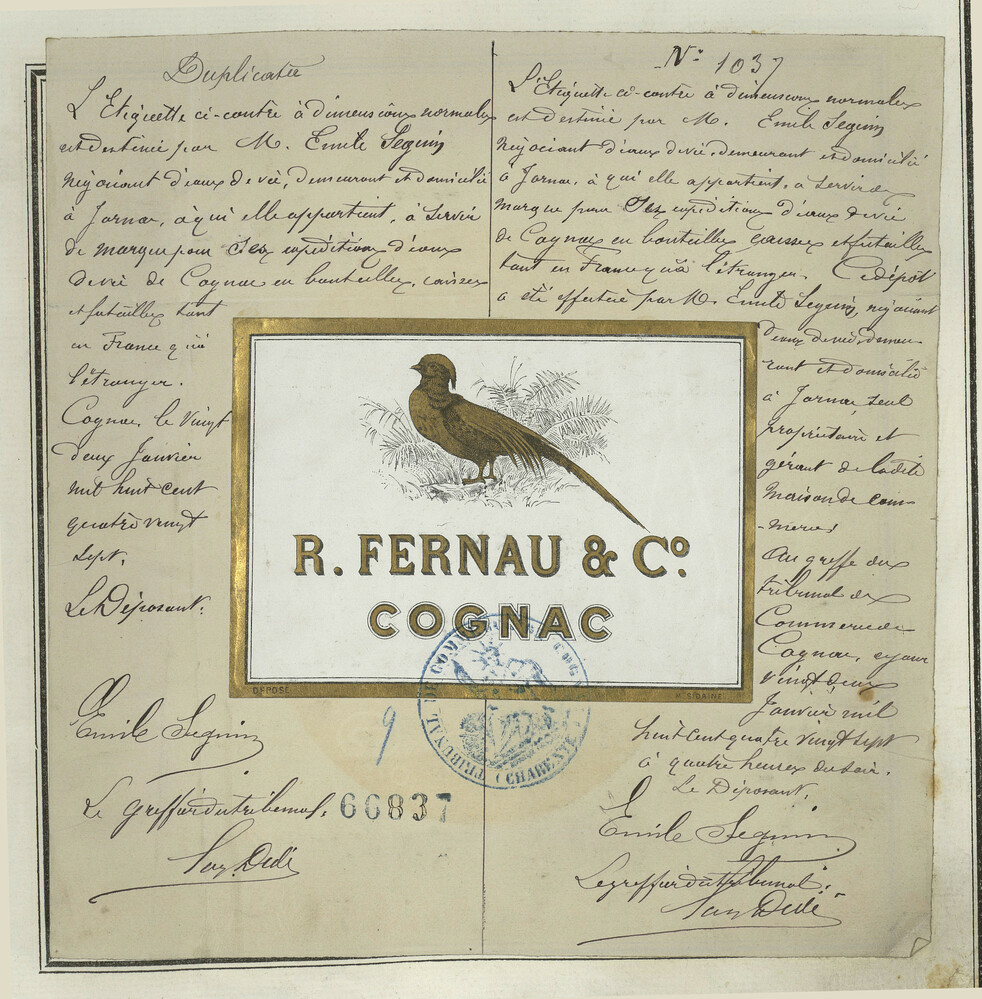 Duplicata
L'Etiquette ci-contre à dimensions normales
est destinée par M. Emile Seguin
négociant d'eaux de vie, demeurant et domicilié
à Jarnac, à qui elle appartient, à servir
de marque pour ses expéditions d'eaux
de vie de Cognac en bouteilles, caisses
et futailles tant
en France qu'à
l'étranger.
Cognac, le vingt
deux Janvier
mil huit cent
quatre vingt
sept.
Le Déposant.
Emile Seguin
Le greffier du tribunal,
66837
9
N° 1037
L'Etiquette ci-contre à dimensions normales
est destinée par M. Emile Seguin
négociant d'eaux de vie, demeurant et domicilié
à Jarnac, à qui elle appartient, à servir de
marque pour ses expéditions d'eaux de vie
de Cognac en bouteilles caisses et futailles
tant en France qu'à l'étranger. Ce dépôt
a été effectué par M. Emile Seguin, négociant
d'eaux de vie, demeu-
rant et domicilié
à Jarnac, seul
propriétaire et
gérant de ladite
maison de com-
-merce,
Au greffe du
tribunal de
Commerce de
Cognac, ce jour
vingt deux
Janvier mil
huit cent quatre vingt sept
à quatre heures du soir.
Le Déposant.
Emile Seguin
Le greffier du tribunal.
R. FERNAU & Co.
COGNAC
DÉPOSÉ
TRIBUNAL DE COMMERCE COGNAC (CHARENTE)